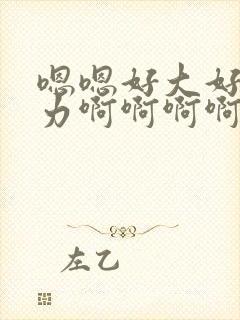 嗯嗯好大好
力啊啊啊啊
左乙